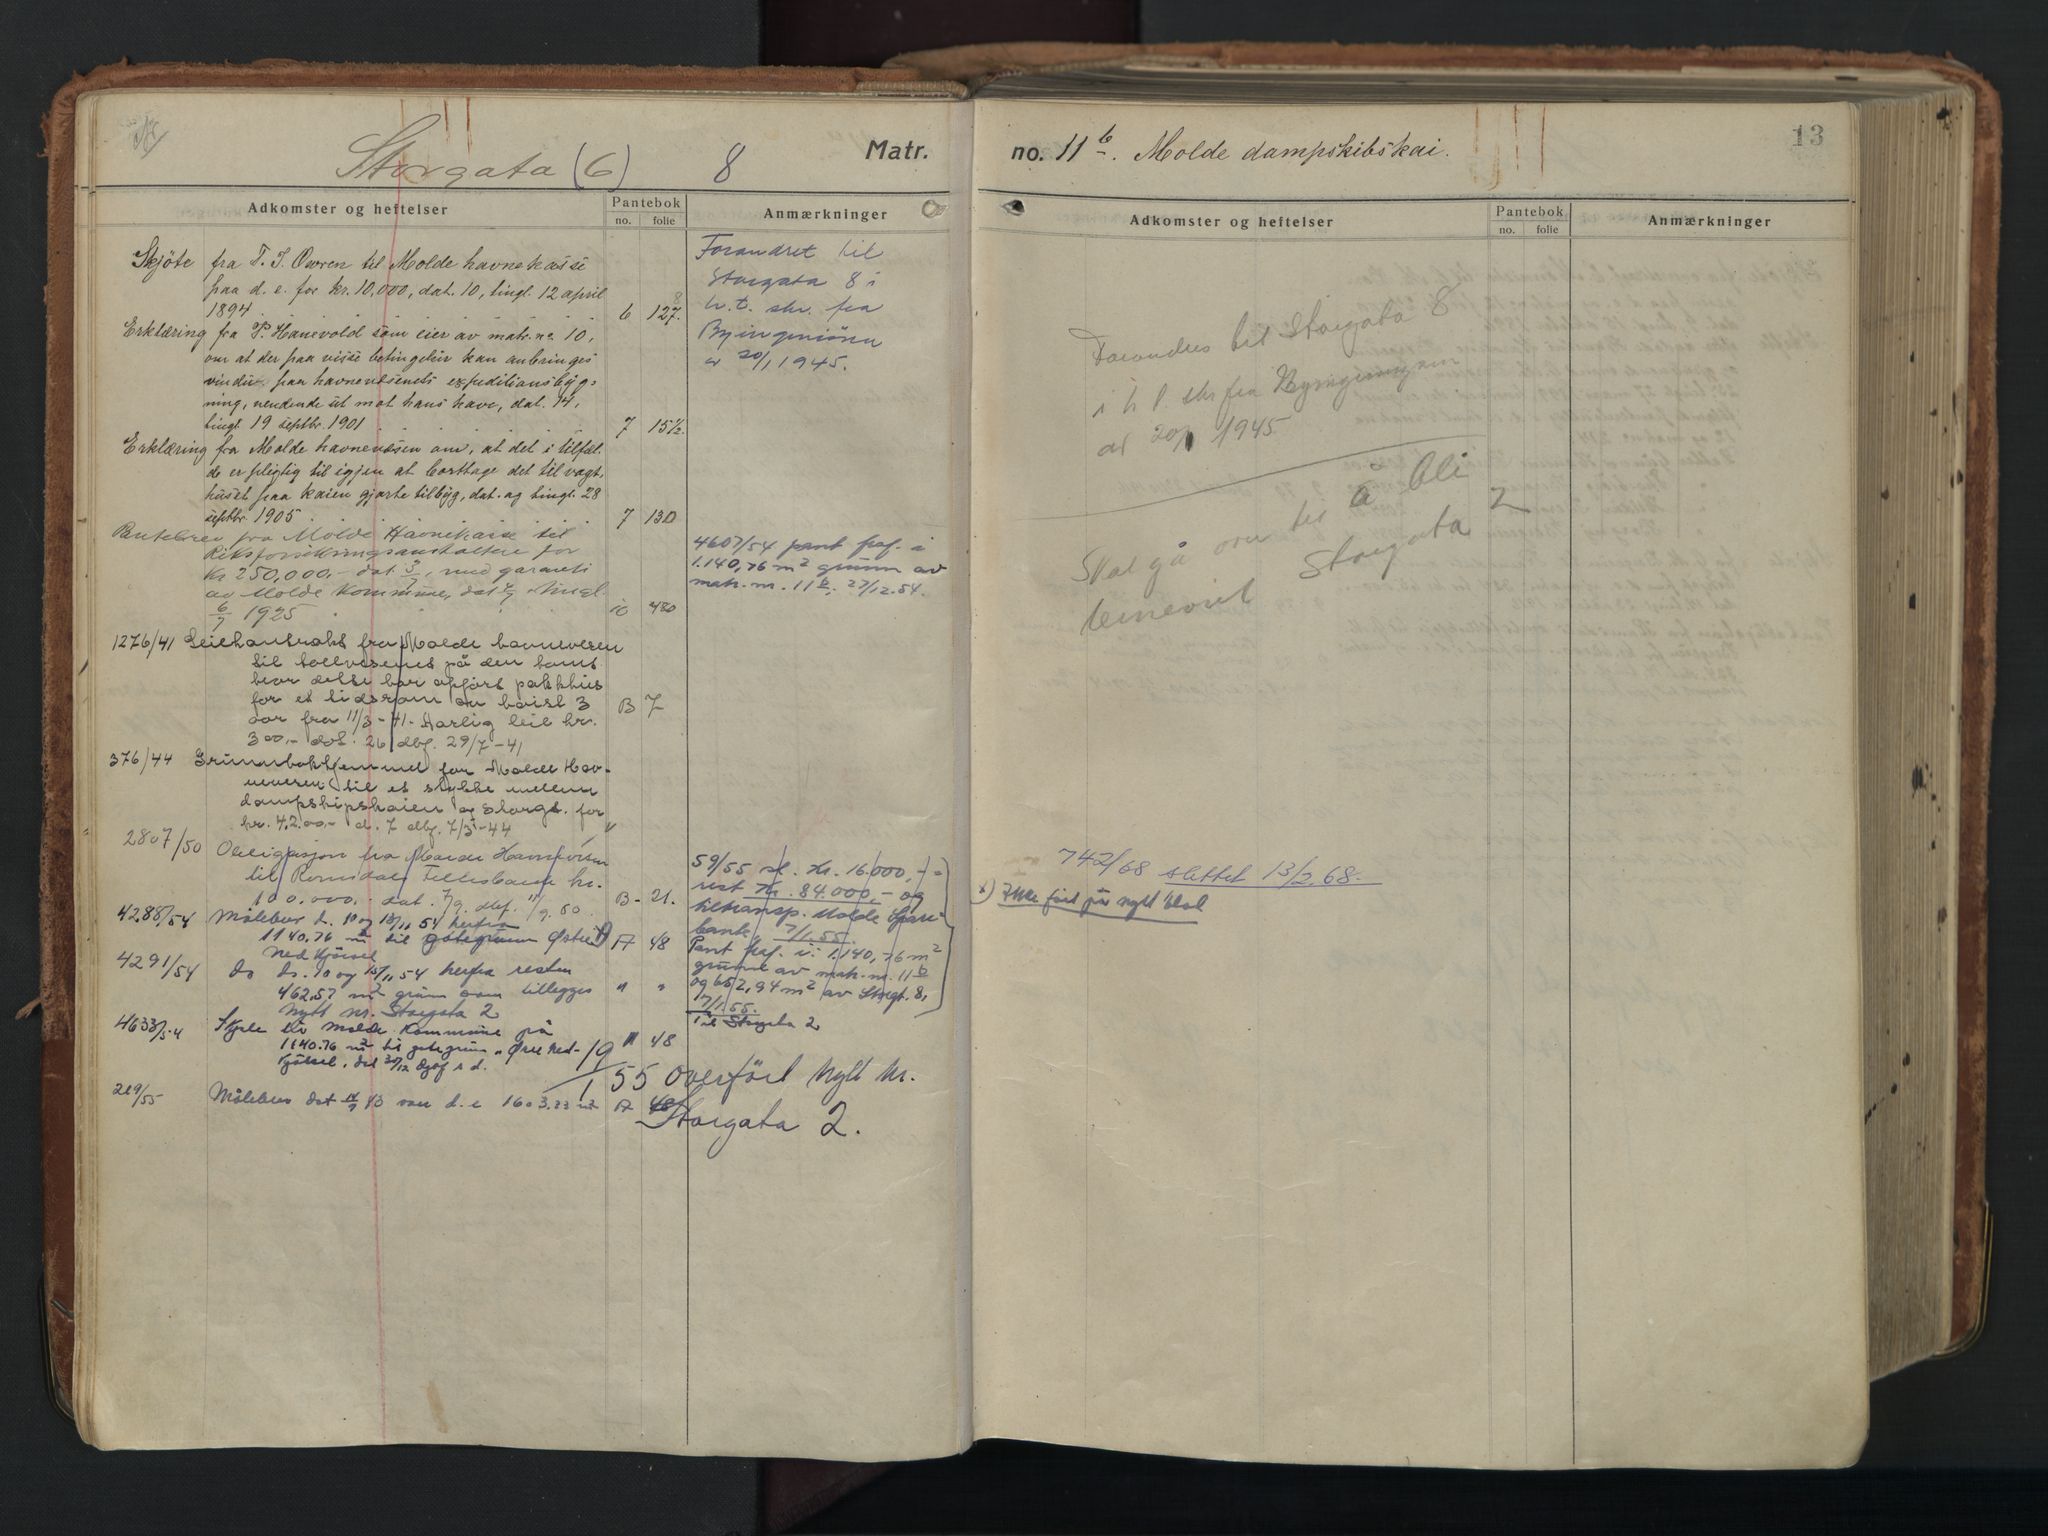 Storgata (6) 8 Matr.
Adkomster og heftelser
Pantebok
no. folie
Anmærkninger
Skjöte fra T. J. Owren til Molde havnekasse
paa d. e. for kr. 10,000, dat. 10, tingl. 12 april
1894 6 127.
Erklæring fra P. Hanevold som eier av matr. no. 10,
om at der paa visse betingelser kan anbringes
vinduer paa havnevæsenets expeditionsbyg-
ning, vendende ut mot hans have, dat. 14,
tingl. 19 septbr. 1901 7 151.
Erklæring fra Molde havnevæsen om, at det i tilfæl-
de er pligtig til igjen at borttage det til vagt-
huset paa kaien gjorte tilbyg, dat. og tingl. 28
septbr. 1905 7 130
Pantebrev fra Molde Havnekasse til
Riksforsikringsanstalten for
Kr 250,000,- dat. 3/7, med garanti
av Molde Kommune, dat. tingl.
6/7 1925 10 480
1276/41 Leiekontrakt fra Molde havnevesen
til tollvesenet på den tomt
hvor dette har opført pakkhus
for et tidsrom av høist 3
aar fra 11/3-41. Aarlig leie kr.
300,- dat. 26 dbf. 29/7-41 B 7
376/44 Grunnbokhjemmel for Molde Hav-
nevesen til et stykke mellem
dampskipskaien og Storgt. for
kr. 4200,- d. 7 dbf. 7/3-44 "
2807/50 Obligasjon fra Molde Havnevesen
til Romsdals Fellesbank kr.
100.000.- dat. 7/9. dbf. 11/9.50. B- 21.
4288/54 Målebrev d. 10 og 13/11 54 herfra
1140.76 m² til gategrunn Østre A 48
Nedkjörsel
4291/54 do d. 10 og 15/11 54 herfra resten
462.57 m² grunn som tillegges " "
Nytt nr. Storgata 2
4633/54 Skjøte til Molde Kommune på
1140.76 m² til gategrunn "Østre Ned- " 48
kjörsel, dat 30/12 Dgbf s d.
219/55 Målebrev dat 43 over d. e 1603.33 m² A 48
Forandret til
Storgata 8 i
h. t. skr. fra
Byingeniören
av 20/1 1945.
4607/54 pant fraf. i
1.140,76 m² grunn av
matr. nr. 11 b, 27/12.54.
59/55 sl. Kr. 16.000,-
rest Kr. 84.000,- og
tiltransp. Molde Spare-
bank, 7/1.55.
Pant fraf. i: 1.140,76 m²
grunn av matr. nr. 11 b
og 652,94 m² av Storgt. 8,
17/1.55.
Til Storgata 2
19/1 55 overfört Nytt Nr.
Storgata 2.
no. 11 b. Molde dampskibskai.
13
Adkomster og heftelser
Pantebok
no. folie
Anmærkninger
Forandres til Storgata 8
i h. t. skr fra Byingeniøren
av 20/1 1945.
Skal gå over til å bli
benevnt Storgata 2
742/68 slettet 13/2.68.-
x) Ikke ført på nytt blad